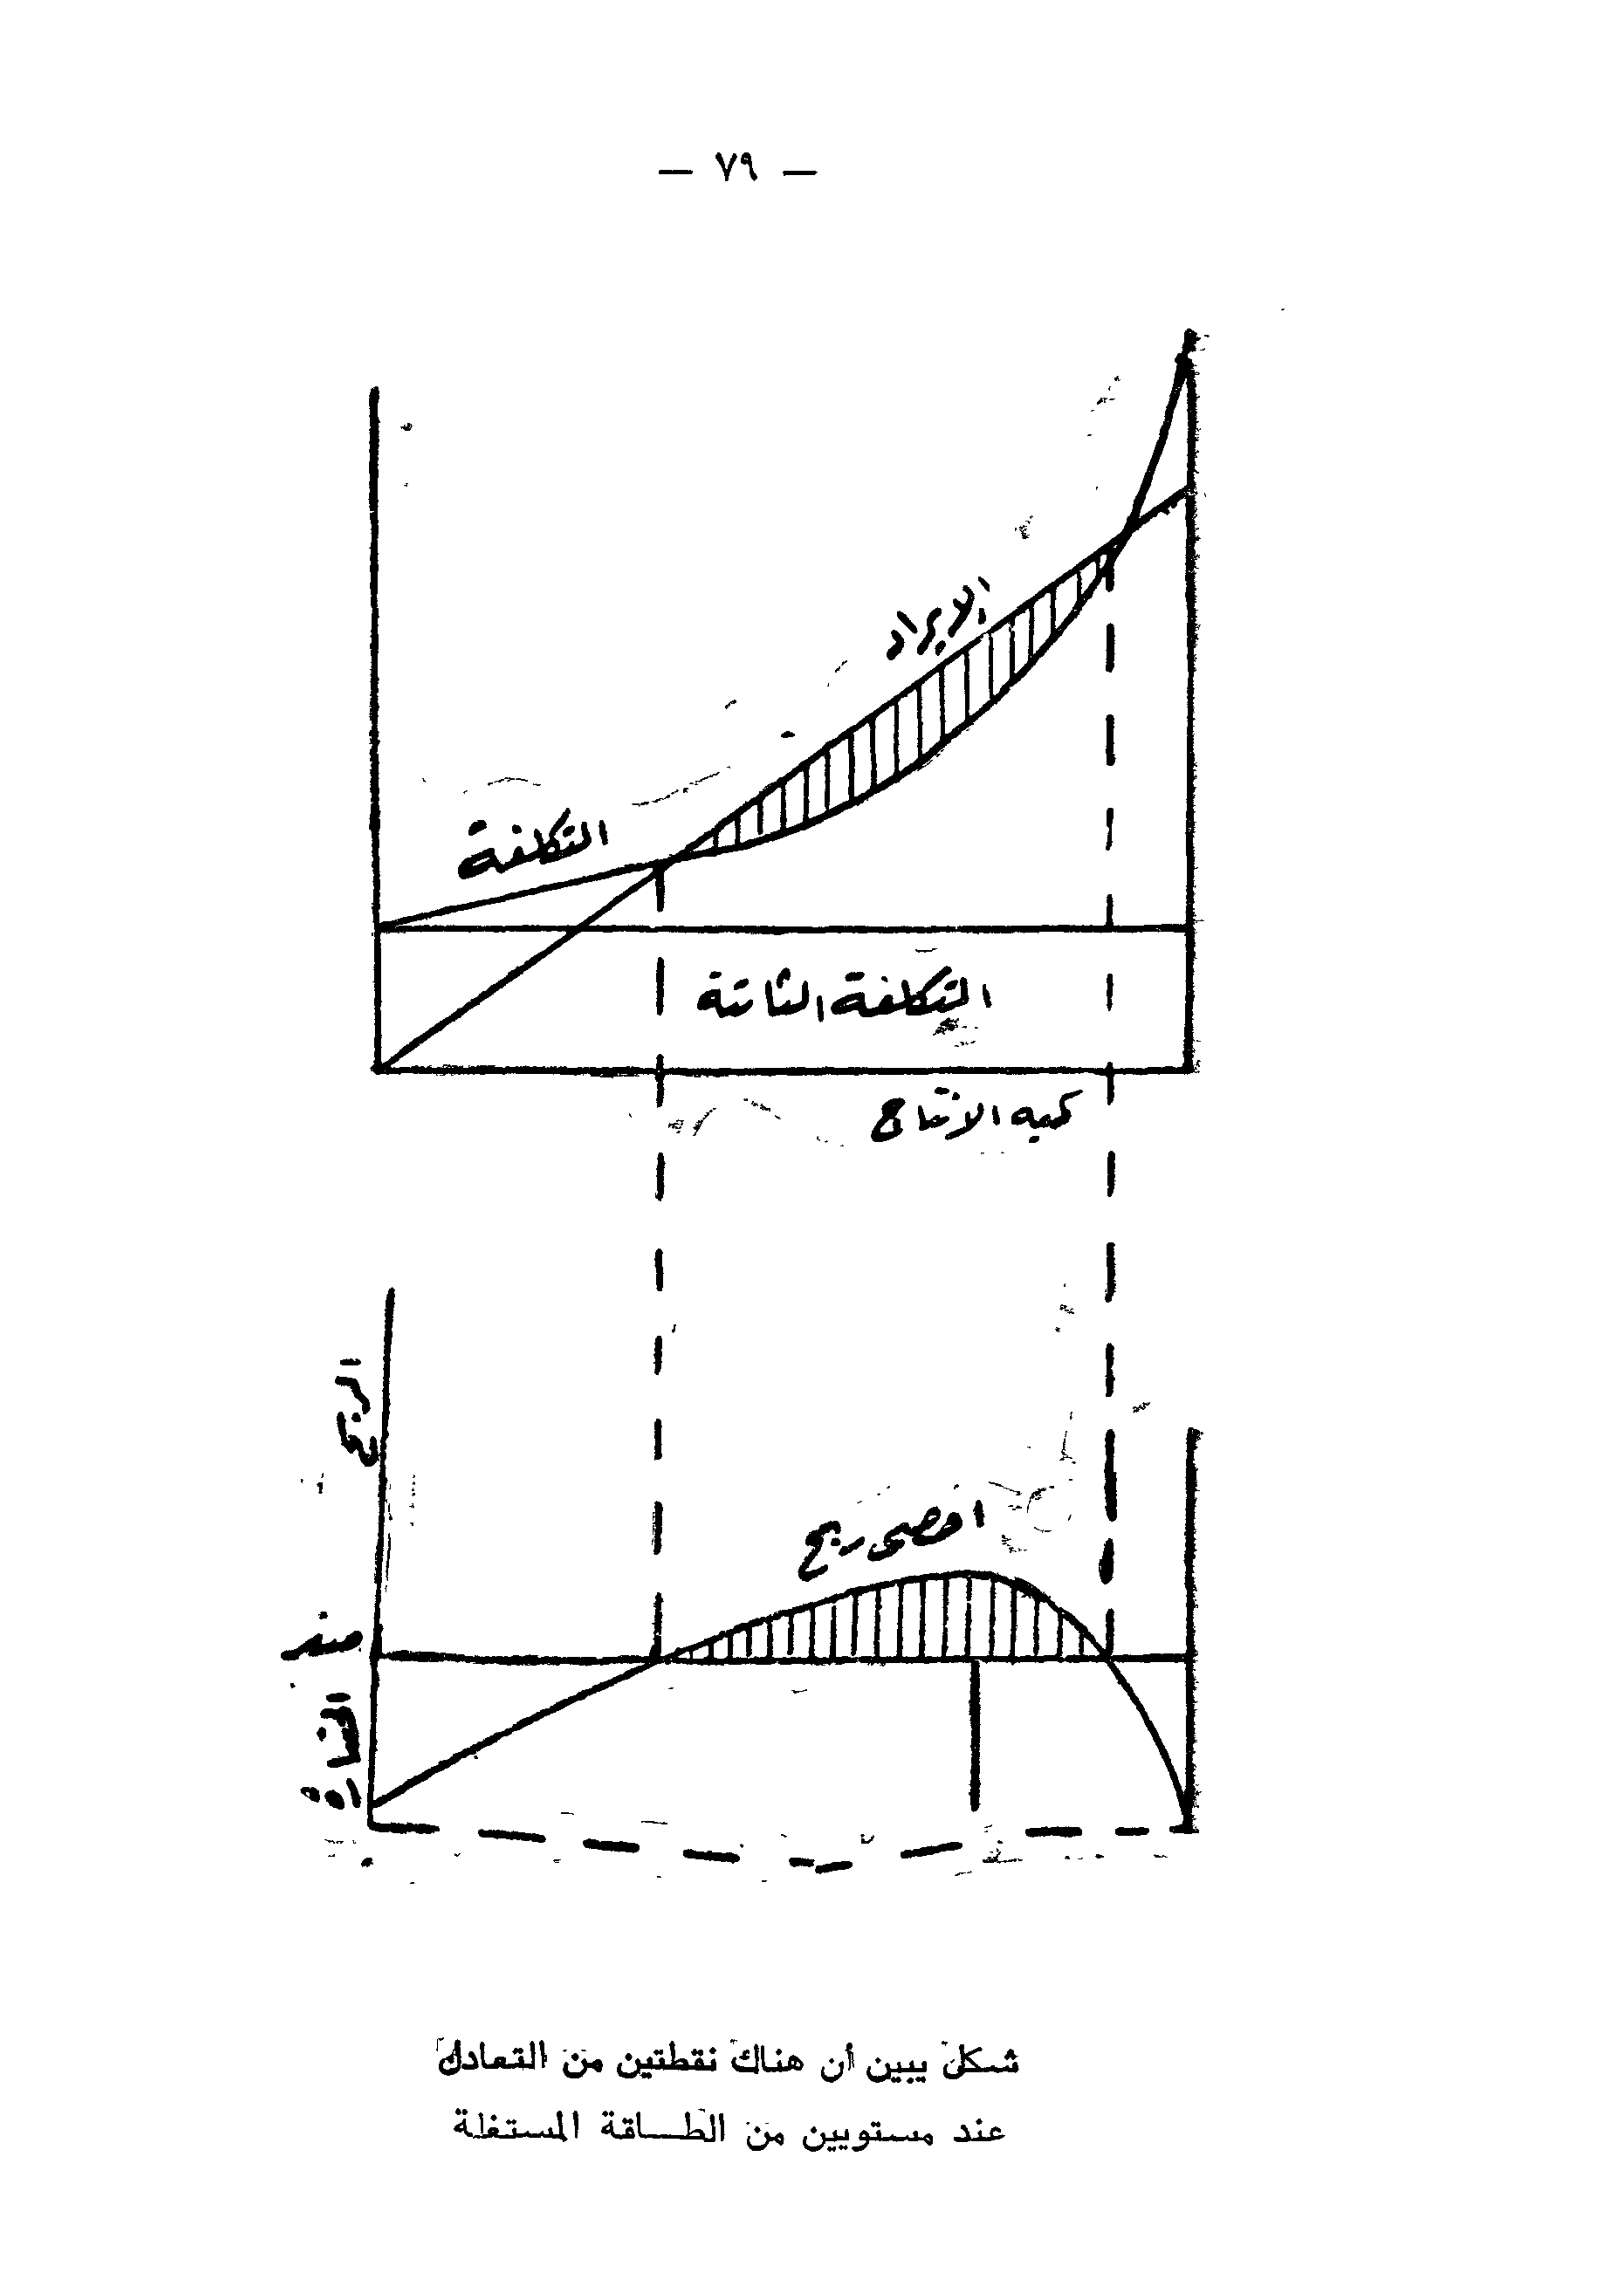 — ٧٩ —
الايراد
التكلفة
التكلفة الثابتة
كميه الانتاج
الربح
اقصى ربح
صفر
الخسارة
شكل يبين أن هناك نقطتين من التعادل
عند مستويين من الطاقة المستغلة